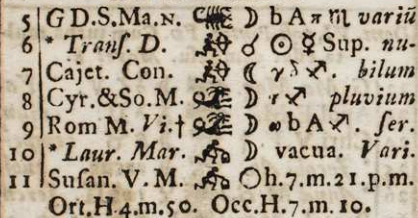 5 G D.S.Ma.N. ♏ ☽ b A π ♏ variū
6 * Tranſ. D. ♐ ☌ ☉ ☿ Sup. nu.
7 Cajet. Con. ♐ ☾ γ δ ♐. bilum
8 Cyr.&So.M. ♑ ☽ ♐ pluvium
9 Rom M. Vi.† ♑ ☽ b A ♐. ſer.
10 * Laur. Mar. ♒ ☽ vacua. Vari.
11 Suſan. V. M. ♒ ○h.7.m.21.p.m.
Ort.H 4.m.50. Occ.H.7.m.10.